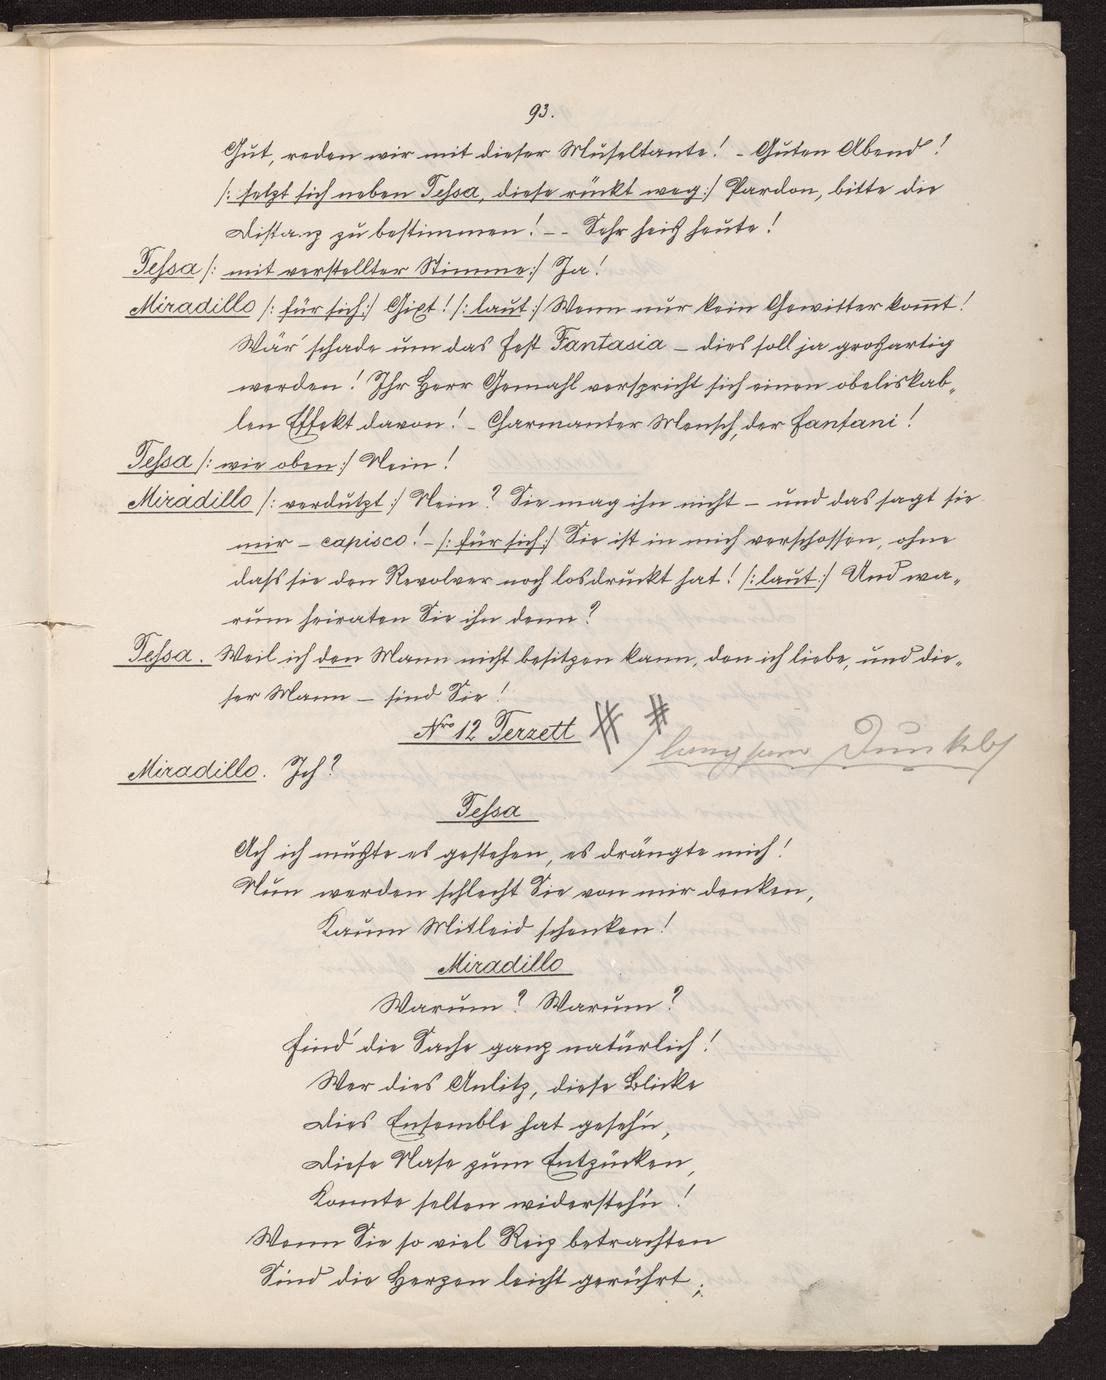 93.
Gut, reden wir mit dieser Museltante! - Guten Abend!
/: setzt sich neben Tessa, diese rückt weg:/ Pardon, bitte die
Distanz zu bestimmen! -- Sehr heiß heute!
Tessa /: mit verstellter Stimme:/ Ja!
Miradillo /: für sich:/ Gixt! /: laut:/ Wenn nur kein Gewitter kom̅t!
Wär' schade um das Fest Fantasia – dies soll ja großartig
werden! Ihr Herr Gemahl verspricht sich einen obeliskab-
len Effekt davon! – Charmanter Mensch, der Fantani!
Tessa /: wie oben:/ Nein!
Miradillo /: verdutzt:/ Nein? Sie mag ihn nicht – und das sagt sie
mir – capisco! – /: für sich:/ Sie ist in mich verschossen, ohne
dass sie den Revolver noch losdruckt hat! /: laut:/ Und wa-
rum heiraten Sie ihn denn?
Tessa. Weil ich den Mann nicht besitzen kann, den ich liebe, und die-
ser Mann – sind Sie!
Nro 12 Terzett # #
langsam Dunkel
Miradillo. Ich?
Tessa
Ach ich mußte es gestehen, es drängte mich!
Nun werden schlecht Sie von mir denken,
Kaum Mitleid schenken!
Miradillo
Warum? Warum?
Find' die Sache ganz natürlich!
Wer dies Anlitz, diese Blicke
Dies Ensemble hat geseh'n,
Diese Nase zum Entzücken,
Konnte selten widersteh'n!
Wenn Sie so viel Reiz betrachten
Sind die Herzen leicht gerührt;